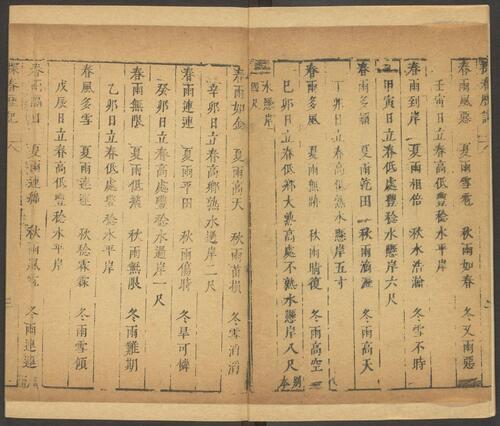 探春歷記
春雨風惡 夏雨雪 秋雨如春 冬又雨惡
壬寅日立春高低豐稔水平岸
春雨到岸 夏雨相倍 秋水浩瀚 冬雪不時
甲寅日立春低處豐稔水懸岸六尺
春雨多 夏雨乾田 秋雨滴瀝 冬雨高天
丁卯日立春高低熟水懸岸五寸
春雨多風 夏雨無時 秋雨晴復 冬雨高空
己卯日立春低鄉大熟高處不熟水懸岸八尺 別本
水懸岸四尺
春雨如金 夏雨高天 秋雨苗損 冬雪消消
辛卯日立春高鄉熟水過岸二尺
春雨連連 夏雨平田 秋雨傷時 冬旱可憐
癸卯日立春高處豐稔水過岸一尺
春雨無限 夏雨低 秋雨無限 冬雨難期
乙卯日立春低處豐稔水平岸
春風多雪 夏雨連連 秋稔霖霖 冬雨雪
戊辰日立春高低豐稔水平岸
春雨滿田 夏雨連綿 秋雨風雪 冬雨連連
探春歷記 八